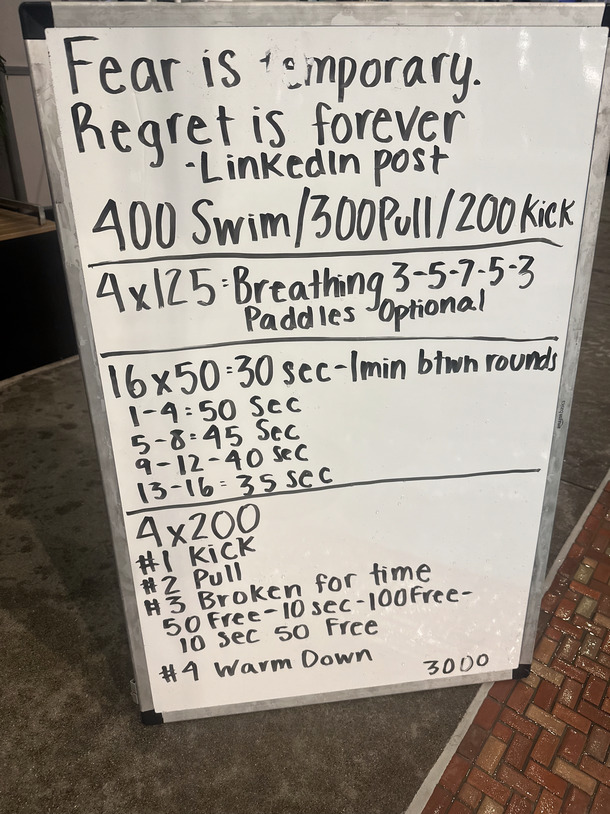 Fear is temporary.
Regret is forever
-LinkedIn post
400 Swim/300Pull/200 Kick
4x125:Breathing 3-5-7-5-3
Paddles Optional
16x50:30 sec-1min btwn rounds
1-4:50 Sec
5-8:45 Sec
9-12-40 sec
13-16:35 sec
4x200
#1 Kick
#2 Pull
#3 Broken for time
50 Free-10 sec-100Free-
10 sec 50 Free
#4 Warm Down
3000